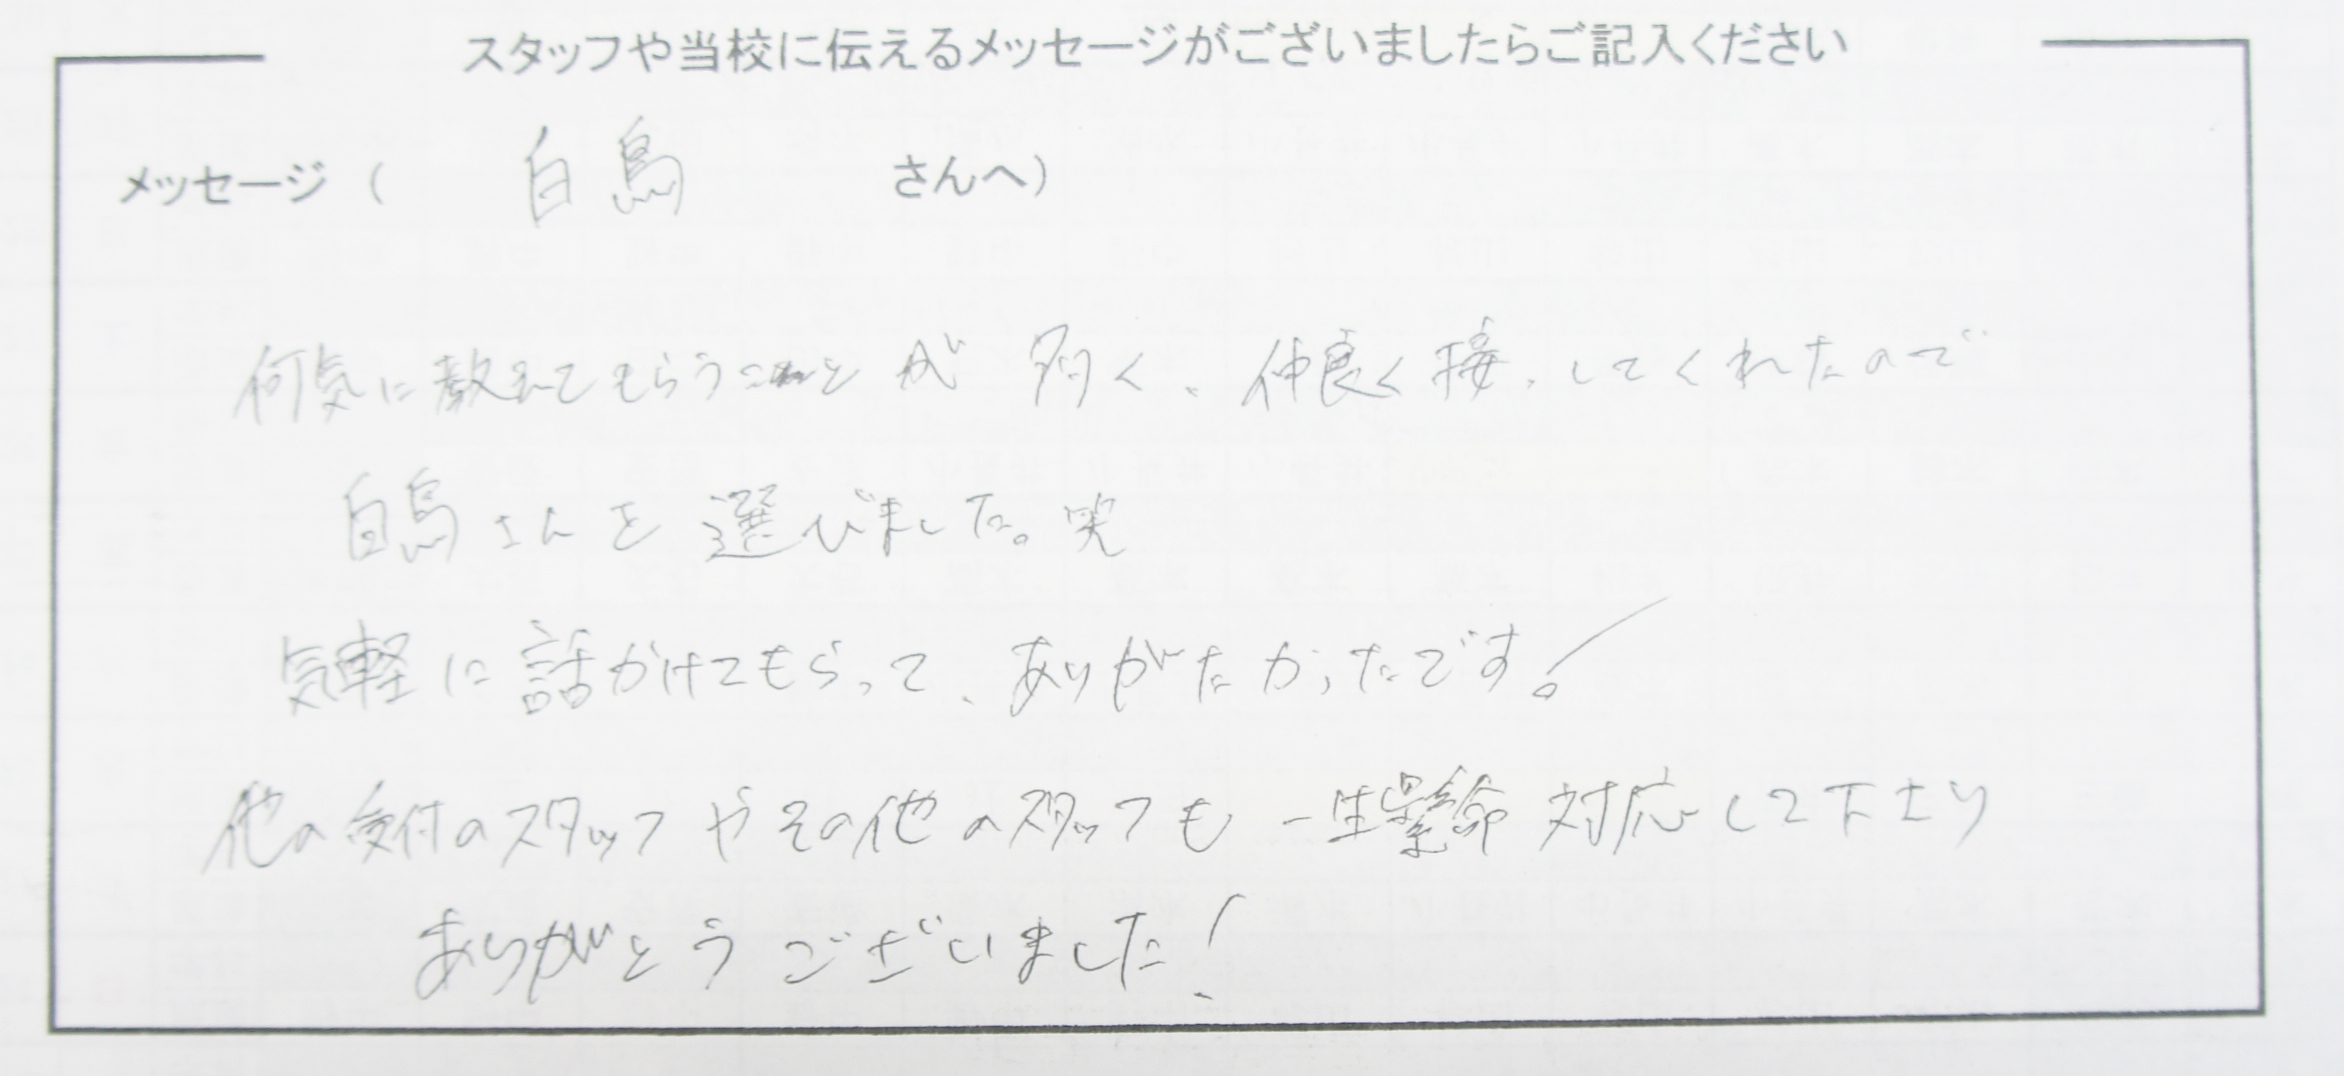 スタッフや当校に伝えるメッセージがございましたらご記入ください
メッセージ（ 白鳥 さんへ）
何気に教えてもらうことが多く、仲良く接してくれたので
白鳥さんを選びました。笑
気軽に話かけてもらって、ありがたかったです。
他の受付のスタッフやその他のスタッフも一生懸命対応して下さり
ありがとうございました!